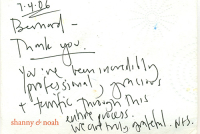 7.4.06
Bernard -
Thank you.
You've been incredibly
professional, gracious
+ terrific through this
entire process.
We are truly grateful.
shanny & noah